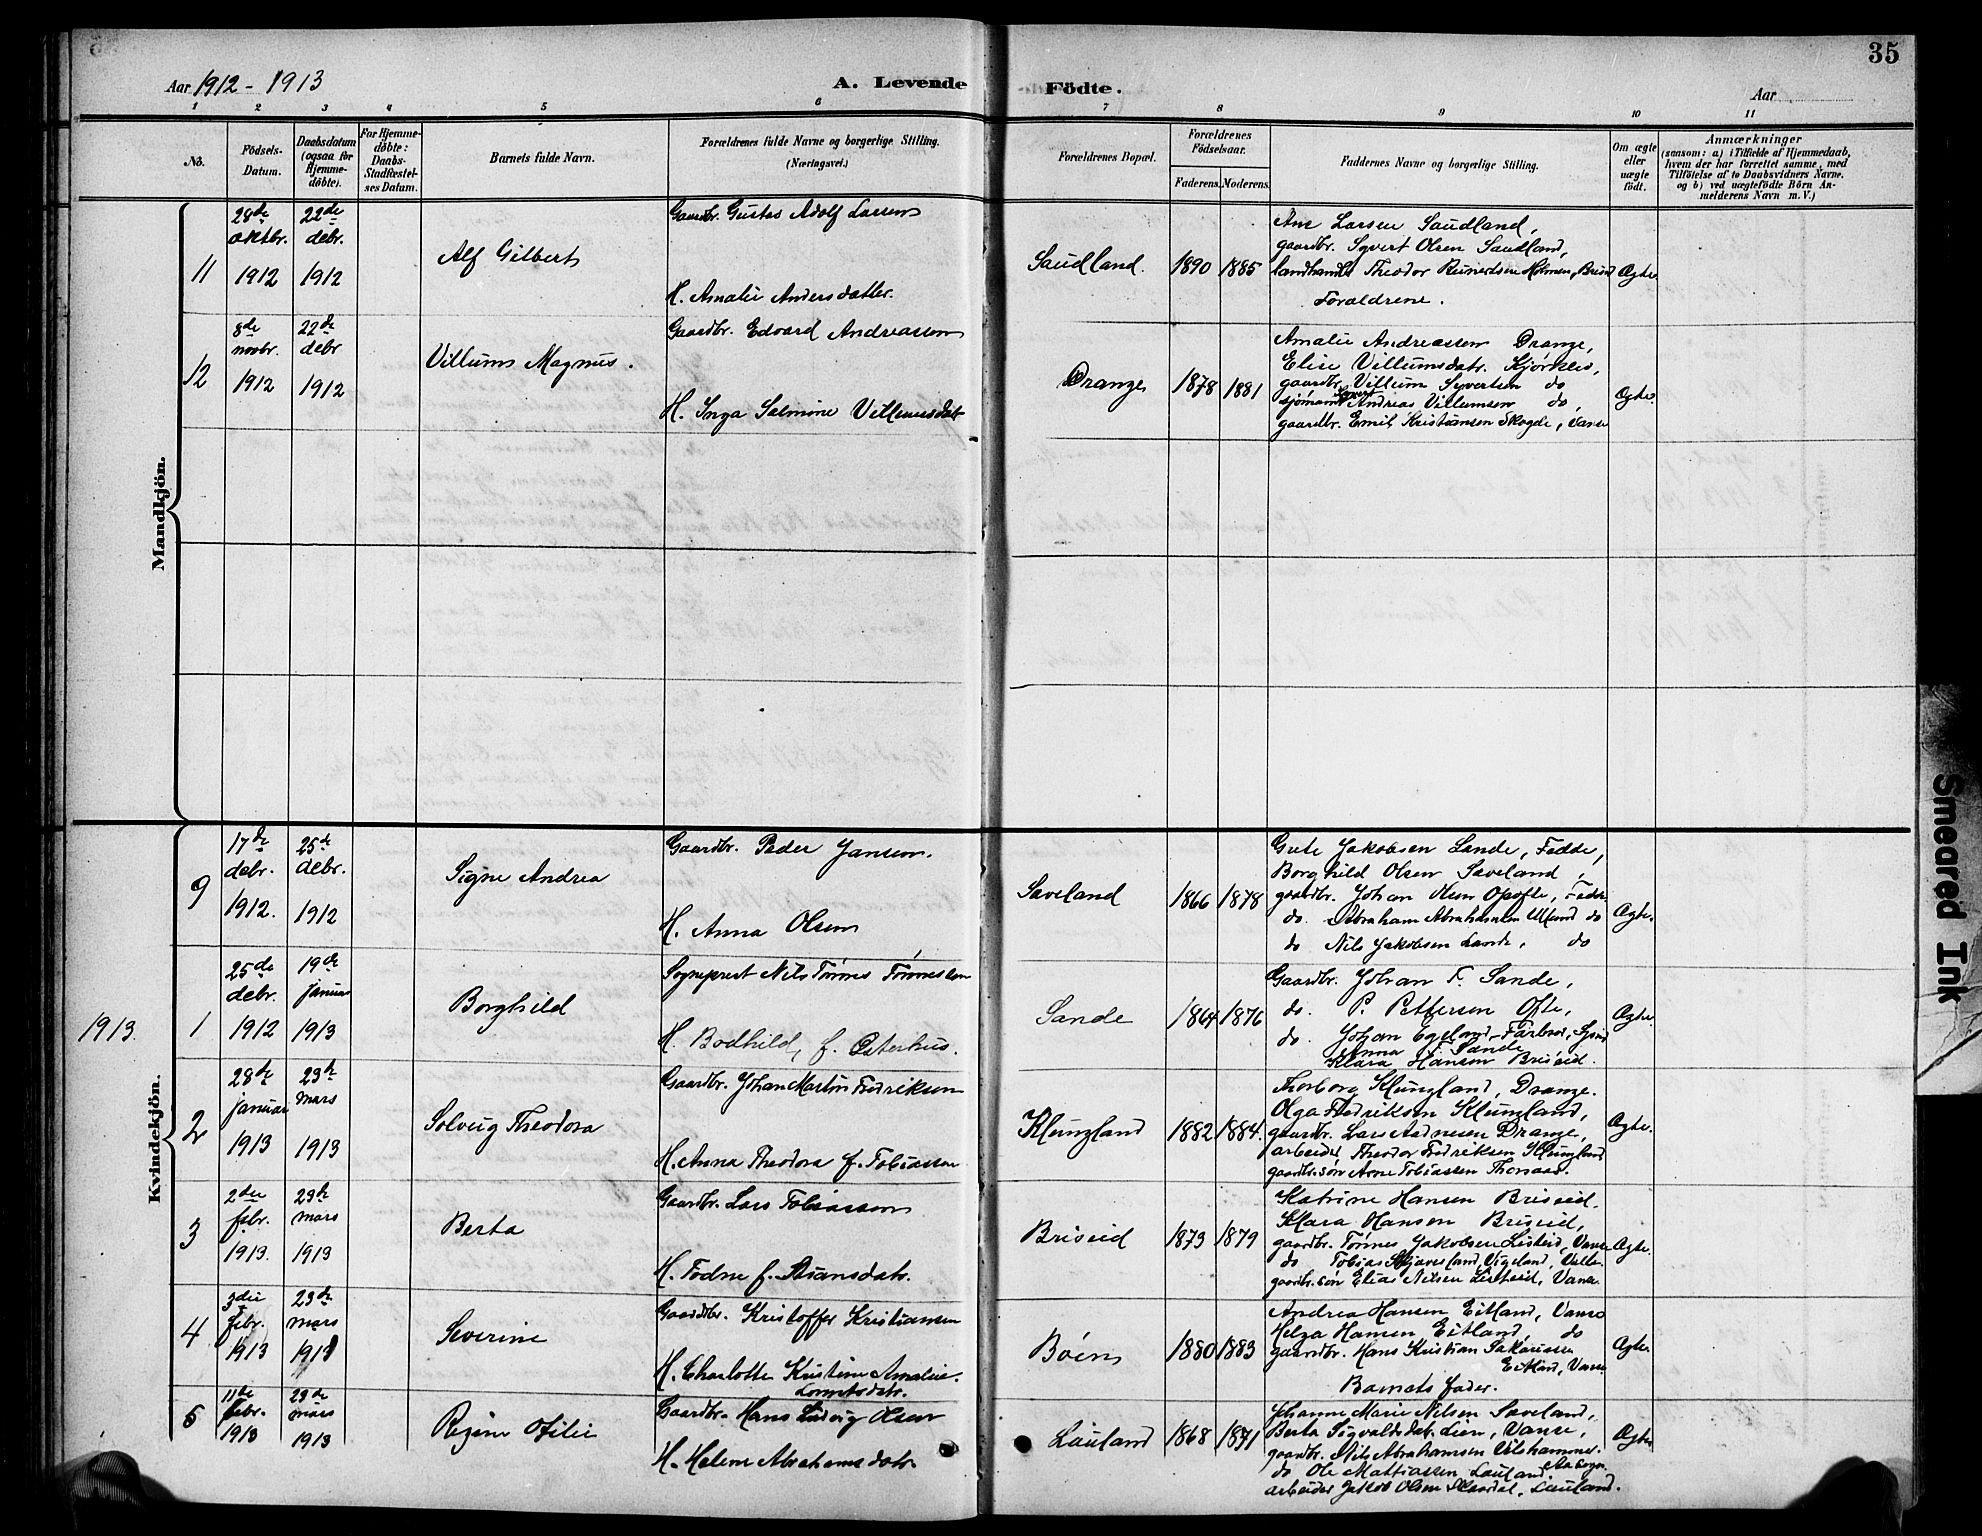 35
Aar 1912 - 1913
A. Levende Födte.
Aar
1 2 3 4 5 6 7 8 9 10 11
No.
Födsels-Datum.
Daabsdatum (ogsaa for Hjemmedöbte).
For Hjemmedöbte: Daabs-Stadfæstelses Datum.
Barnets fulde Navn.
Forældrenes fulde Navne og borgerlige Stilling. (Næringsvei.)
Forældrenes Bopæl.
Forældrenes Födselsaar.
Faderens. Moderens.
Faddernes Navne og borgerlige Stilling.
Om ægte eller uægte födt.
Anmærkninger
(saasom: a) i Tilfælde af Hjemmedaab, hvem der har forrettet samme, med Tilföielse af to Daabsvidners Navne, og b) ved uægtefödte Börn Anmelderens Navn m. V.)
Mandkjön.
11
28de oktbr. 1912
22de debr. 1912
Alf Gilbert
Gaardbr. Gustav Adolf Larsen
H. Amalie Andersdatter.
Saudland.
1890 1885
Ane Larsen Saudland,
gaardbr. Syvert Olsen Saudland,
landhandl. Theodor Reinertsen Holmen,
Forældrene.
Ægte
12
8de novbr. 1912
22de debr 1912
Villum Magnus.
Gaardbr. Edvard Andreassen
H. Inga Salmine Villumsdatr
Drange
1878 1881
Amalie Andreassen Drange,
Elise Villumsdatr.
gaardbr. Villum Syvertsen do
sjømand Andreas Villumsen do,
gaardbr. Emil Kristiansen Skogde, Vanse
Ægte
Kvindekjön.
9
17de debr. 1912.
25de debr. 1912
Signe Andrea
Gaardbr. Peder Jansen.
H. Anna Olsen
Saveland
1866 1878
Gute Jakobsen Sande, Fedde,
Borghild Olsen Saveland,
gaardbr. Johan Olsen Opofte, Fedde
do. Abraham Abrahamsen do
do Nils Jakobsen Sande, do
Ægte.
1913.
1
25de debr. 1912
19de januar 1913
Borghild
Sogneprest Nils Tønnes Tønnessen
H. Bodhild, f. Østerhus.
Sande
1864 1876
Gaardbr. Johan F. Sande,
do. P. Pettersen Ofte,
do. Johan Egeland,
Anna F. Sande
Klara Hansen Briseid.
Ægte.
2
28de januar 1913
23de mars 1913
Solveig Theodora
Gaardbr. Johan Martin Fredriksen
H. Anna Theodora f. Tobiassen
Klungland
1882 1884.
Thorborg Klungland, Drange.
Olga Fredriksen Klungland,
gaardbr. Lars Aadnesen Drange,
arbeider Theodor Fredriksen Klungland
gaardbr.søn Arne Tobiassen
Ægte.
3
2den febr. 1913.
23de mars 1913
Berta
Gaardbr. Lars Tobiassen
H. Todne f. Stiansdatr.
Briseid
1873 1879
Katrine Hansen Briseid.
Klara Hansen Briseid,
gaardbr. Tønnes Jakobsen Listeid, Vanse
do Tobias Skjævesland, Vigeland, Valle.
gaardbr.søn Elias Nilsen Listeid, Vanse
Ægte.
4
3die febr. 1913
23de mars 1913
Severine
Gaardbr. Kristoffer Kristiansen
H. Charlotte Kristine Amalie
Lorentsdatr.
Bøen
1880 1883
Andrea Hansen Eitland, Vanse
Helga Hansen Eitland do
gaardbr. Hans Kristian Sakariassen
Eitland, Vanse.
Barnets fader.
Ægte
5
11te febr. 1913
23de mars 1913
Regine Otilie
Gaardbr. Hans Ludvig Olsen
H. Helene Abrahamsdatr.
Lauland
1868 1871
Johanne Marie Nilsen Saveland,
Berta Sigvaldsdatr. Lien, Vanse,
gaardbr. Nils Abrahamsen
do Ole Mattiassen Lauland.
arbeider Jakob Olsen Lauland.
Ægte
Smeared Ink